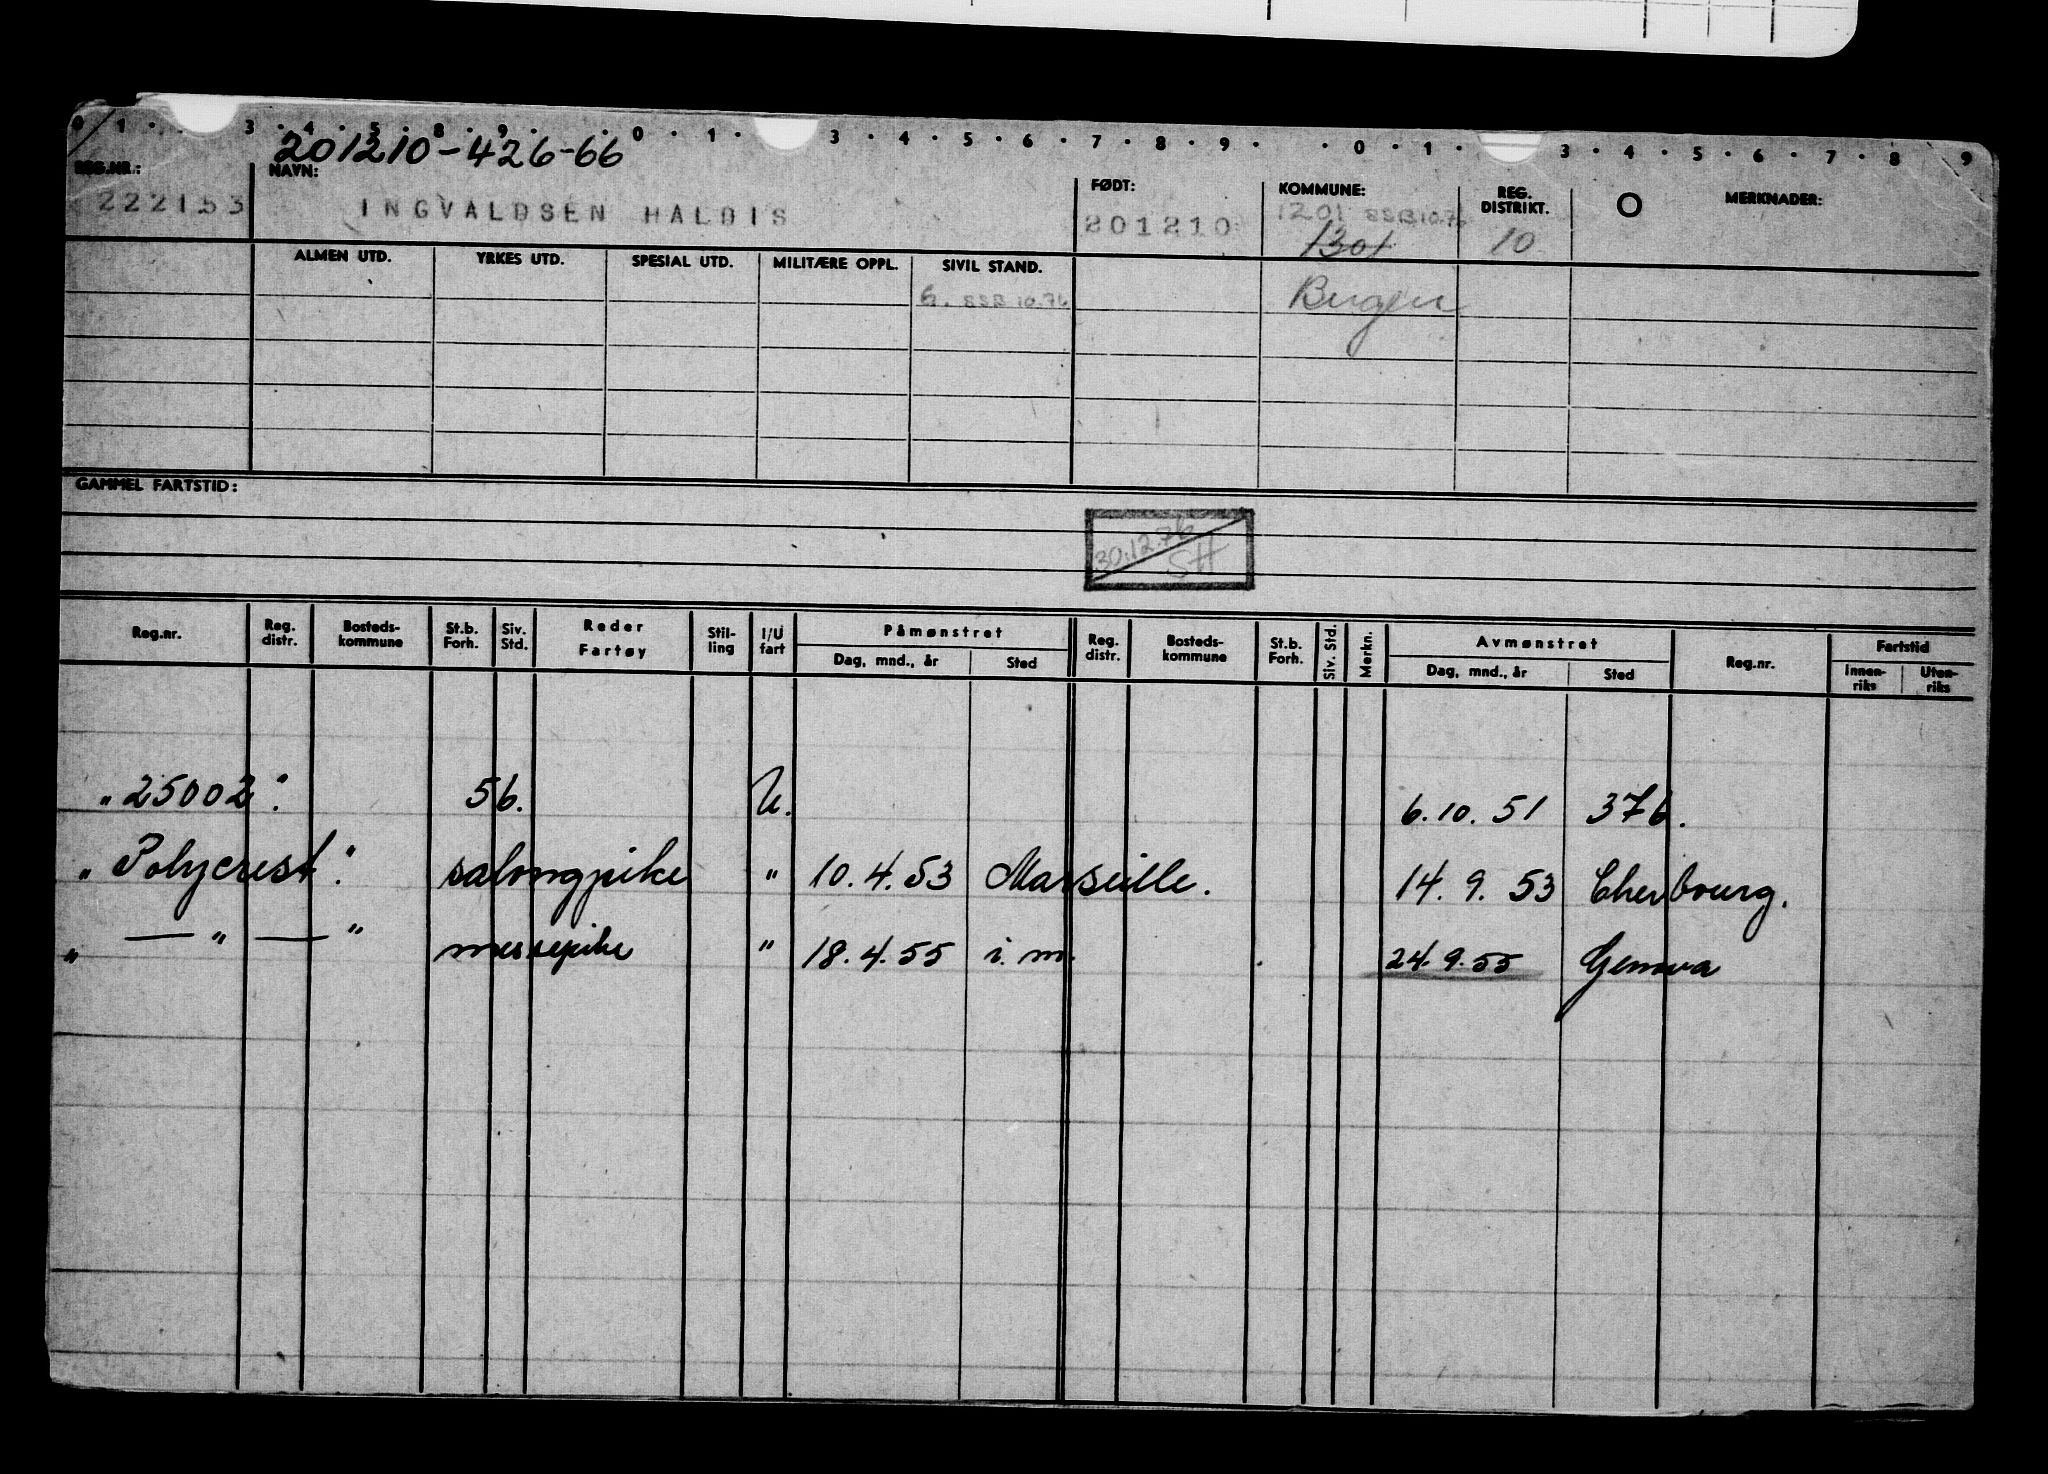 0 1 · 3 · 4 · 5 · 8 · 9 · 0 · 1 · 3 · 4 · 5 · 6 · 7 · 8 · 9 · · 0 · 1 · 3 · 4 · 5 · 6 · 7 · 8 9
201210-426-66
REG.NR.: NAVN: FØDT: KOMMUNE: REG. DISTRIKT. O MERKNADER:
222153 INGVALDSEN HALDIS 201210 1201 SSB 10.76 10
1301
ALMEN UTD. YRKES UTD. SPESIAL UTD. MILITÆRE OPPL. SIVIL STAND.
6. SSB 10.76 Bergen
GAMMEL FARTSTID:
30.12.76
SH
Reg.nr. Reg. distr. Bosteds-kommune St.b. Forh. Siv. Std. Reder Fartøy Stil-ling I/U fart Påmønstret Reg. distr. Bosteds-kommune St.b. Forh. Siv. Std. Merkn. Avmønstret Reg.nr. Fartstid
Dag, mnd., år Sted Dag, mnd., år Sted Innen-riks Uten-riks
"25002". 56. U. 6.10.51 376.
"Polycrest". salongpike " 10.4.53 Marseille. 14.9.53 Cherbourg.
" — " — " messepike " 18.4.55 i.m. 24.9.55 Genova